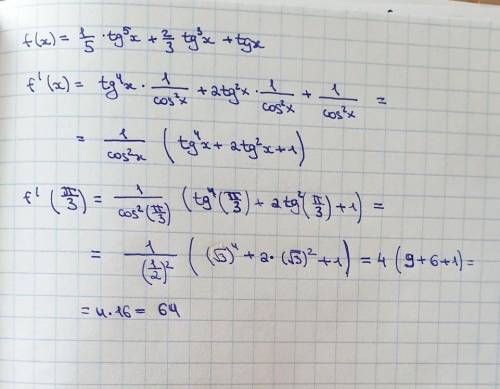 f(x) = 1/5 · tg⁵x + 2/3 tg³x + tgx
f'(x) = tg⁴x · 1/cos²x + 2tg²x · 1/cos²x + 1/cos²x =
= 1/cos²x (tg⁴x + 2tg²x + 1)
f'(π/3) = 1/cos²(π/3) (tg⁴(π/3) + 2tg²(π/3) + 1) =
= 1/(1/2)² ((√3)⁴ + 2·(√3)² + 1) = 4 (9 + 6 + 1) =
= 4·16 = 64